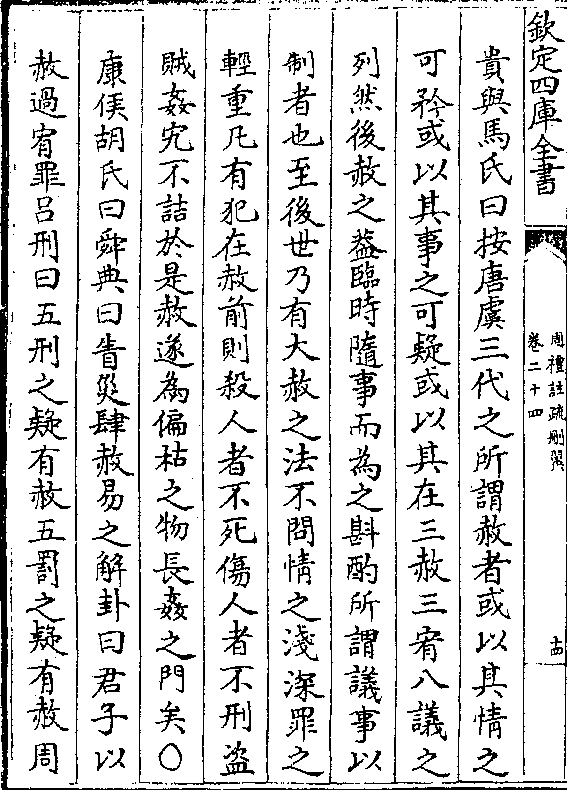 欽定四庫全書
周禮註疏刪翼
卷二十四
十四
貴與馬氏曰按唐虞三代之所謂赦者或以其情之
可矜或以其事之可疑或以其在三赦三宥八議之
列然後赦之蓋臨時隨事而為之斟酌所謂議事以
制者也至後世乃有大赦之法不問情之淺深罪之
輕重凡有犯在赦前則殺人者不死傷人者不刑盜
賊姦宄不詰於是赦遂為偏枯之物長姦之門矣〇
康侯胡氏曰舜典曰眚災肆赦易之解卦曰君子以
赦過宥罪呂刑曰五刑之疑有赦五罰之疑有赦周